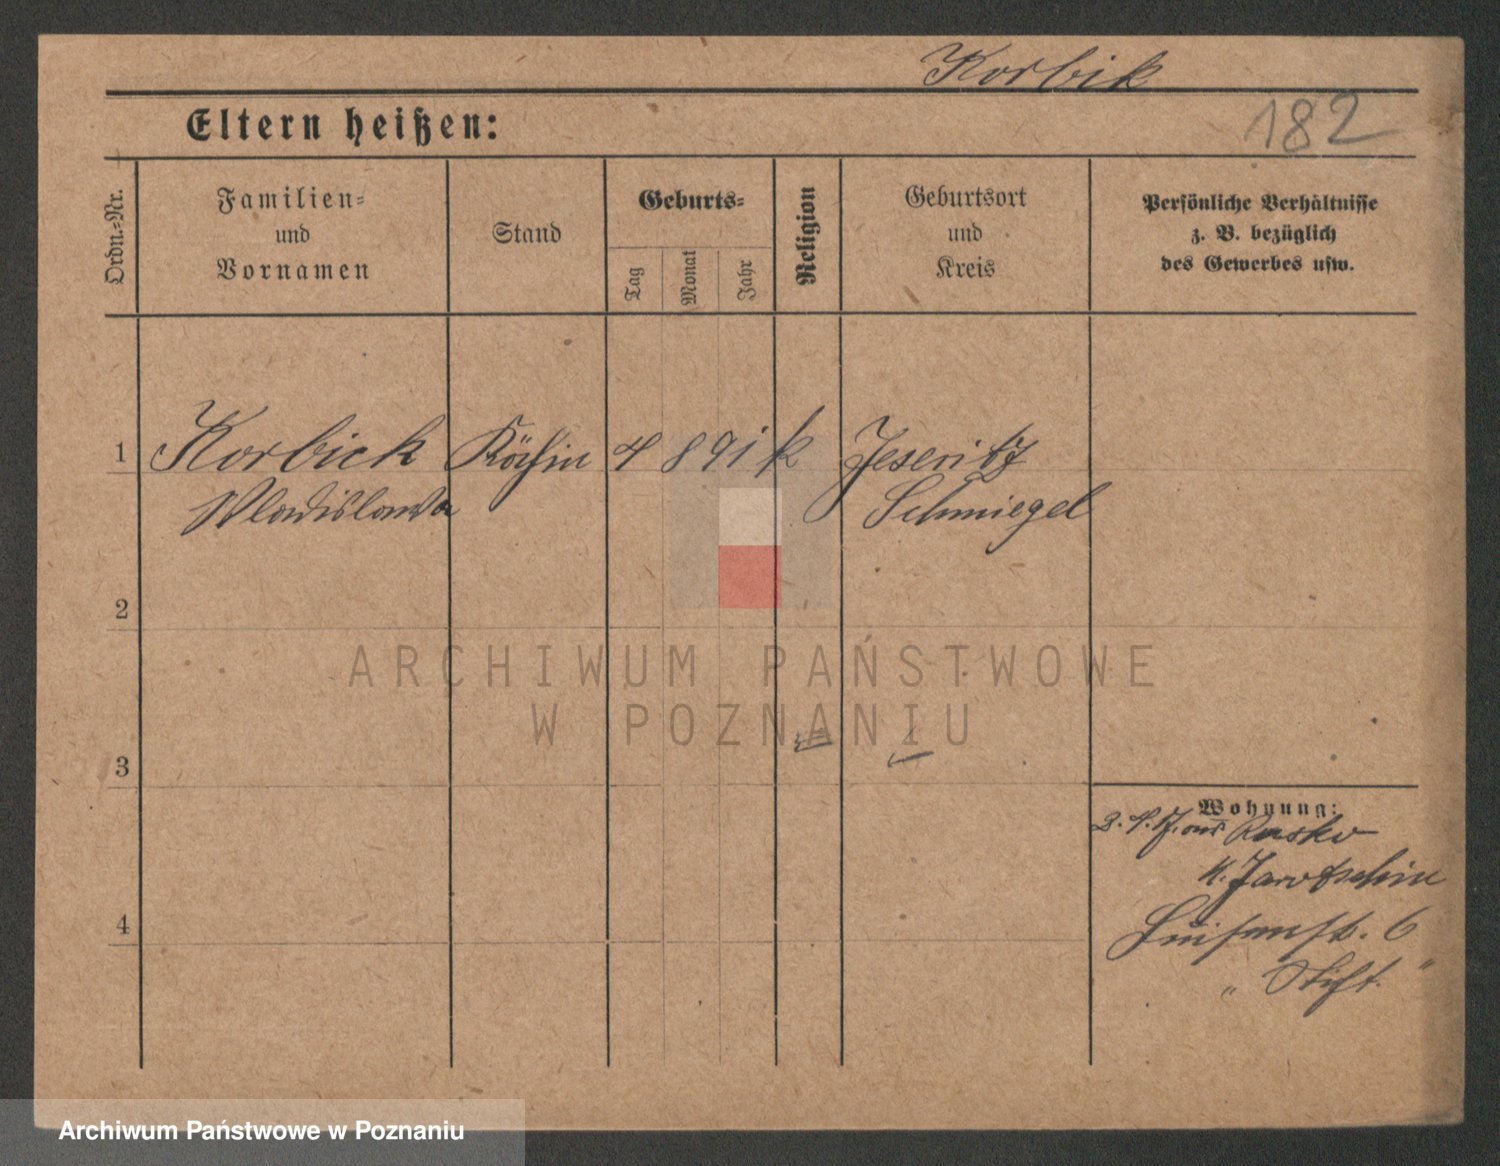 Korbik
182
Eltern heißen:
Ordn.-Nr.
Familien-
und
Vornamen
Stand
Geburts-
Tag
Monat
Jahr
Religion
Geburtsort
und
Kreis
Persönliche Verhältnisse
z. B. bezüglich
des Gewerbes usw.
1 Korbick Köchin 4 8 91 k Jeseritz
Wladislawa Schmiegel
2
ARCHIWUM PAŃSTWOWE
W POZNANIU
3
Wohnung:
aus Rusko
K. Jarotschin
4
Luisenstr. 6
" Stift. "
Archiwum Państwowe w Poznaniu